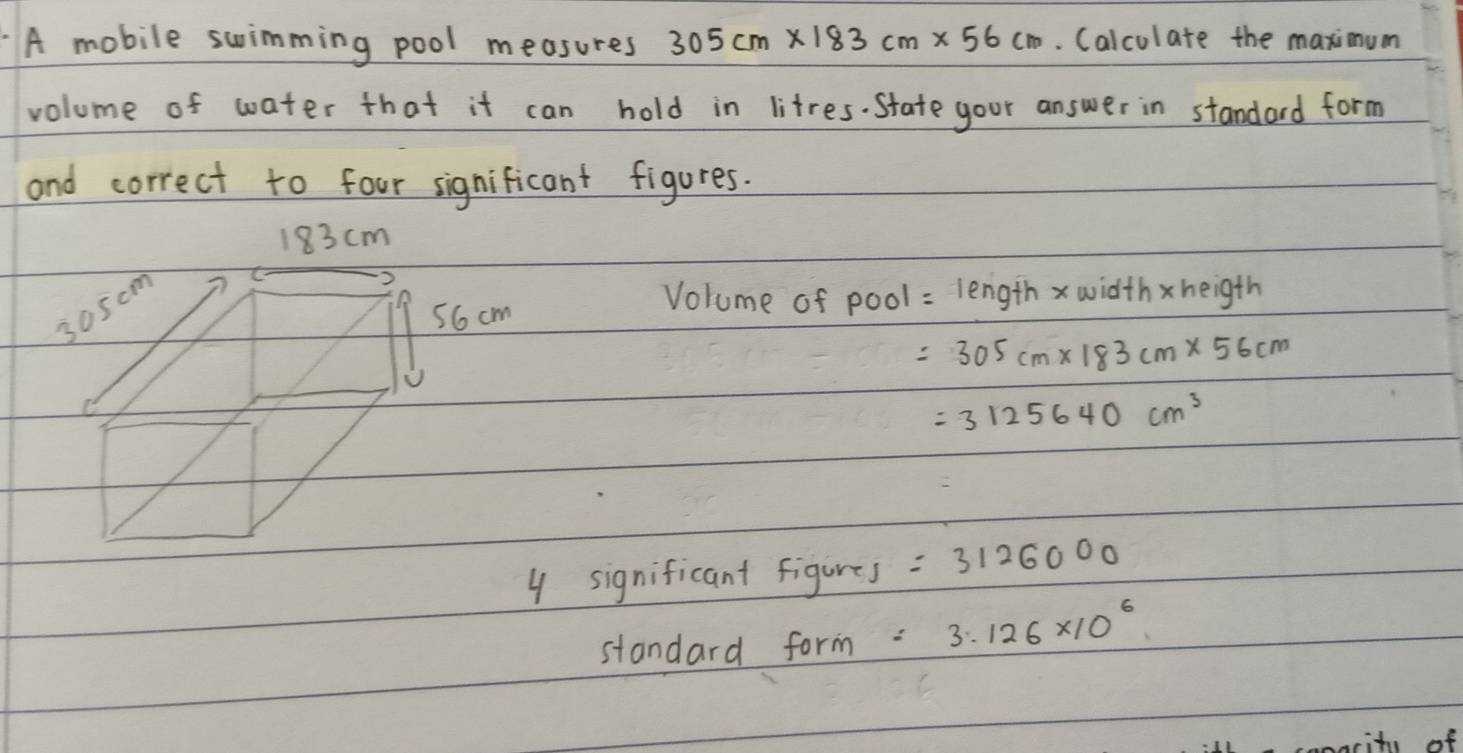 A mobile swimming pool measures 305cm × 183 cm × 56 cm. Calculate the maximum
volume of water that it can hold in litres. State your answer in standard form
and correct to four significant figures.
183cm
305cm
56 cm
Volume of pool = length × width × heigth
= 305 cm × 183 cm × 56cm
= 3125640 cm³
=
4 significant figures = 3126000
standard form = 3.126 × 10⁶
capacity of